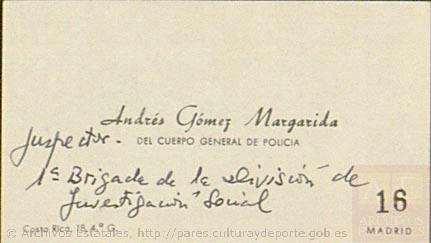 Andrés Gómez Margarida
Inspector.
DEL CUERPO GENERAL DE POLICIA
1ª Brigada de la División de
Investigación Social
Costa Rica, 18, 4.º G.
16
MADRID
© Archivos Estatales, http://pares.culturaydeporte.gob.es